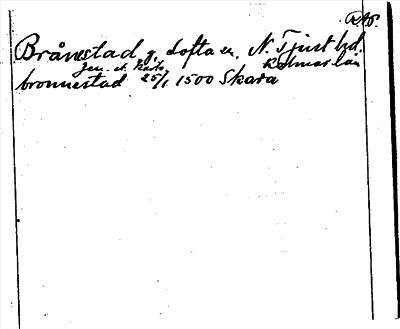 Brånestad, g. Lofta sn. N. Tjust hd.
Kalmar län
bronnestad 25/1 1500 Skara